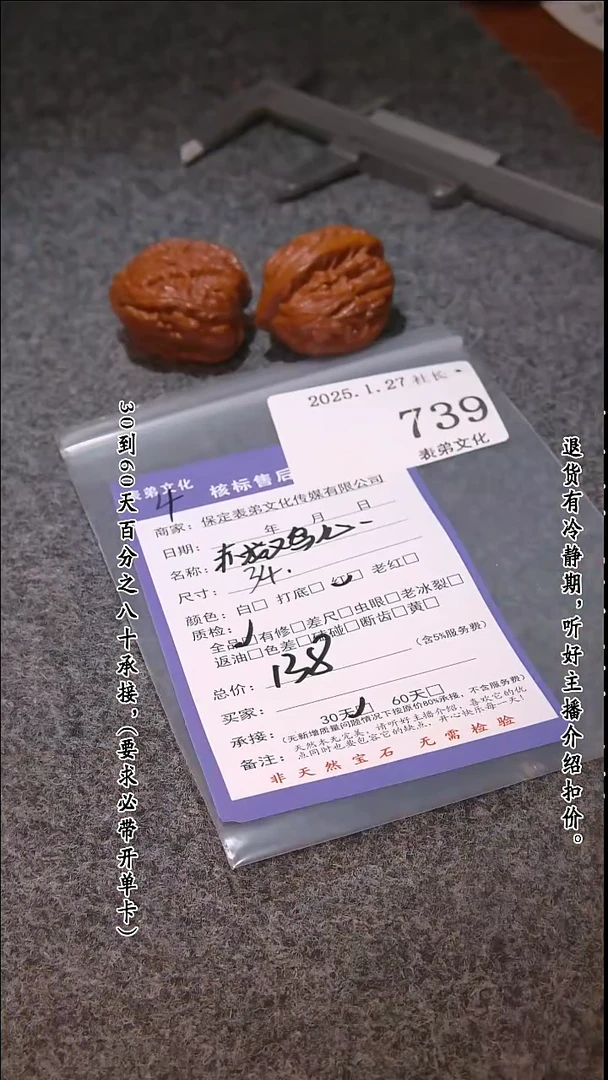 30到60天百分之八十承接，（要求必带开单卡）
退货有冷静期，听好主播介绍扣价。
2025.1.27 社长
739
表弟文化
表弟文化 核标售后
4
商家：保定表弟文化传媒有限公司
日期： 年 月 日
名称：
尺寸：34.
颜色：白□ 打底□ 红□ 老红□
质检：
全品□有修□差尺□虫眼□老冰裂□
返油□色差□磕碰□断齿□黄□
总价：138 (含5%服务费)
买家：
承接：30天□ 60天□
(无新增质量问题情况下按原价80%承接，不含服务费)
备注：天然本无完美，请听好主播介绍，喜欢它的优
点同时也要包容它的缺点，开心快乐每一天！
非天然宝石 无需检验